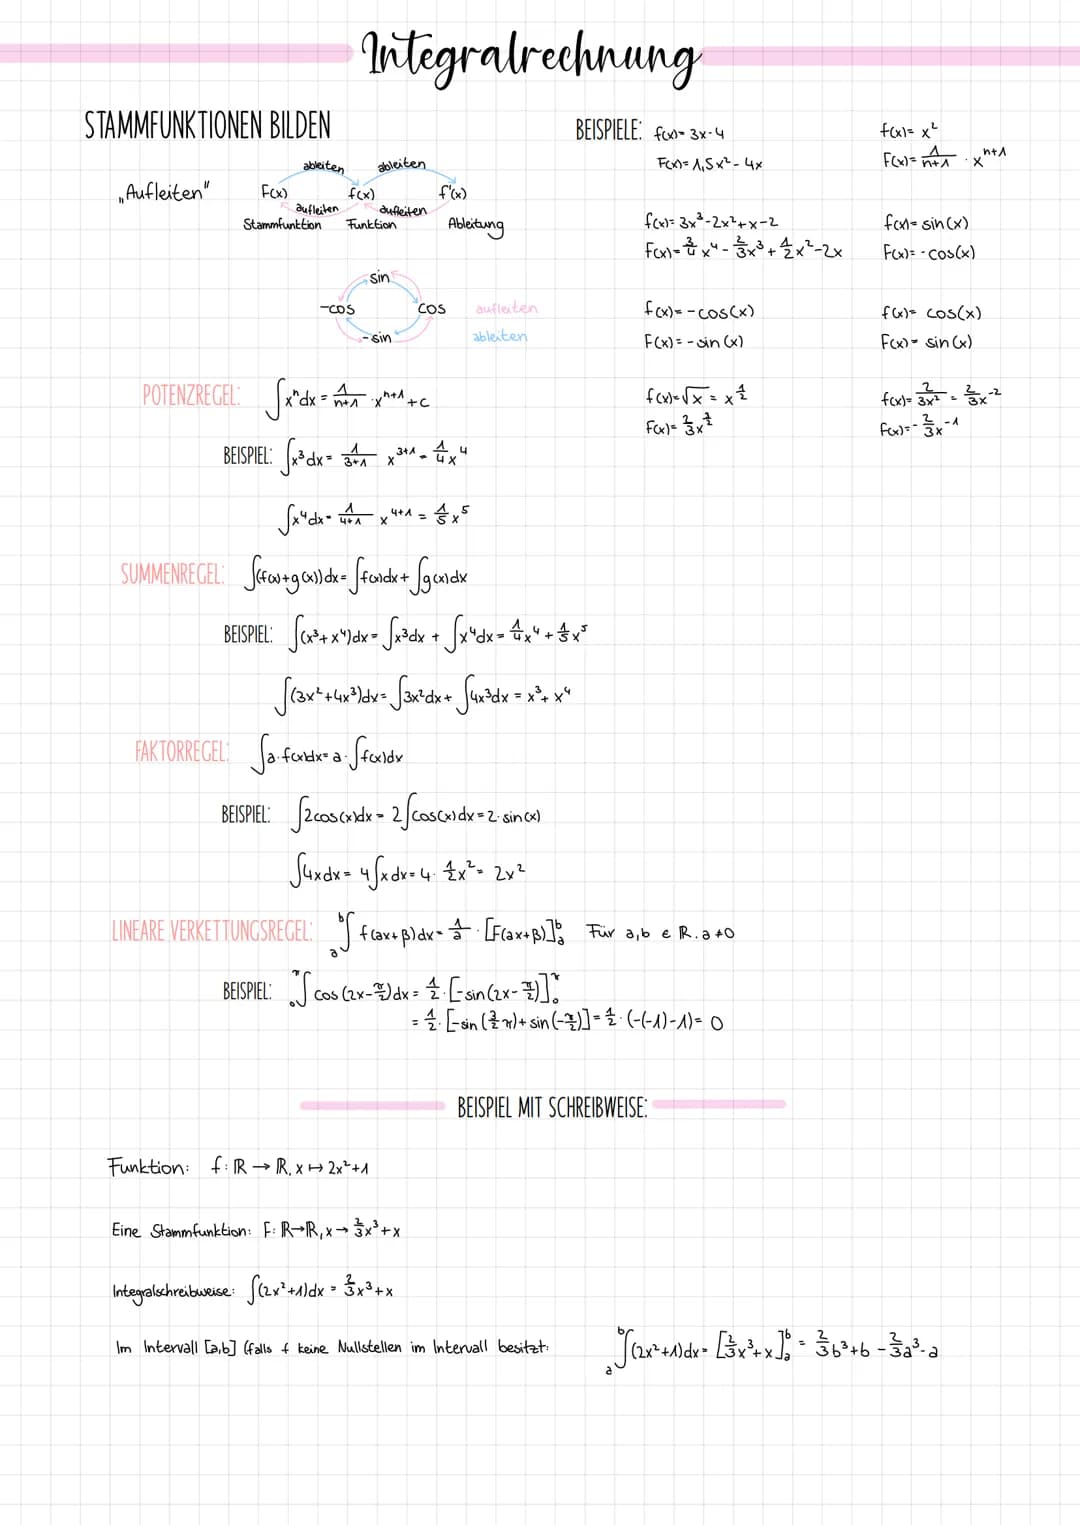 Integralrechnung
STAMMFUNKTIONEN BILDEN
„Aufleiten"
ableiten ableiten
F(x) f(x) f'(x)
aufleiten aufleiten
Stammfunktion Funktion Ableitung
sin
-cos cos
-sin
aufleiten
ableiten
BEISPIELE: f(x)= 3x-4
F(x)= 1,5x² - 4x
f(x)= x²
F(x)= 1/(n+1) · x^(n+1)
f(x)= 3x³-2x²+x-2
F(x)= 3/4 x⁴ - 2/3 x³ + 1/2 x² - 2x
f(x)= sin(x)
F(x)= -cos(x)
f(x)= -cos(x)
F(x)= -sin(x)
f(x)= cos(x)
F(x)= sin(x)
f(x)= √x = x^(1/2)
F(x)= 2/3 x^(3/2)
f(x)= 2/(3x²) = 2/3 x⁻²
F(x)= - 2/3 x⁻¹
POTENZREGEL: ∫xⁿdx = 1/(n+1) · x^(n+1) + c
BEISPIEL: ∫x³dx = 1/(3+1) x^(3+1) = 1/4 x⁴
∫x⁴dx = 1/(4+1) x^(4+1) = 1/5 x⁵
SUMMENREGEL: ∫(f(x)+g(x))dx = ∫f(x)dx + ∫g(x)dx
BEISPIEL: ∫(x³+x⁴)dx = ∫x³dx + ∫x⁴dx = 1/4 x⁴ + 1/5 x⁵
∫(3x²+4x³)dx = ∫3x²dx + ∫4x³dx = x³ + x⁴
FAKTORREGEL: ∫a·f(x)dx = a·∫f(x)dx
BEISPIEL: ∫2cos(x)dx = 2∫cos(x)dx = 2·sin(x)
∫4xdx = 4∫xdx = 4· 1/2 x² = 2x²
LINEARE VERKETTUNGSREGEL: ₐ∫ᵇ f(ax+β)dx = 1/a · [F(ax+β)]ₐᵇ Für a,b ∈ ℝ. a≠0
BEISPIEL: ₀∫^π cos(2x-π/2)dx = 1/2 · [-sin(2x-π/2)]₀^π
= 1/2 · [-sin(3/2 π)+sin(-π/2)] = 1/2 · (-(-1)-1) = 0
BEISPIEL MIT SCHREIBWEISE:
Funktion: f: ℝ → ℝ, x ↦ 2x²+1
Eine Stammfunktion: F: ℝ→ℝ, x → 2/3 x³+x
Integralschreibweise: ∫(2x²+1)dx = 2/3 x³+x
Im Intervall [a,b] (falls f keine Nullstellen im Intervall besitzt: ₐ∫ᵇ(2x²+1)dx = [2/3 x³+x]ₐᵇ = 2/3 b³+b - 2/3 a³-a